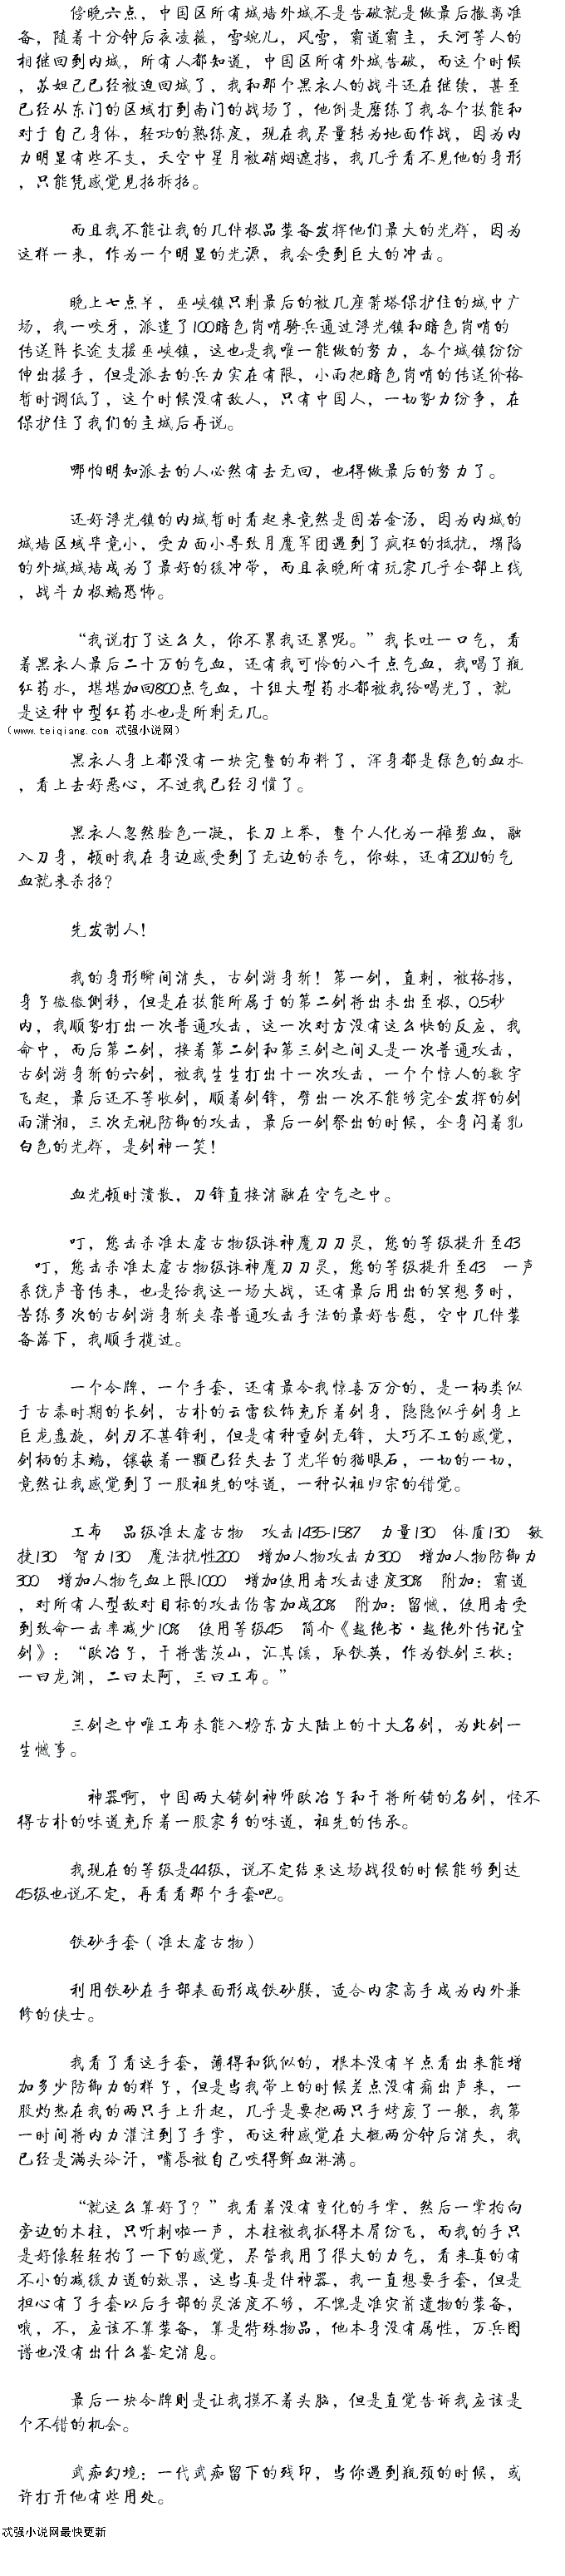 傍晚六点，中国区所有城墙外城不是告破就是做最后撤离准
备，随着十分钟后夜凌薇，雪婉儿，风雪，霸道霸主，天河等人的
相继回到内城，所有人都知道，中国区所有外城告破，而这个时候
，苏妲己已经被迫回城了，我和那个黑衣人的战斗还在继续，甚至
已经从东门的区域打到南门的战场了，他倒是磨练了我各个技能和
对于自己身体，轻功的熟练度，现在我尽量转为地面作战，因为内
力明显有些不支，天空中星月被硝烟遮挡，我几乎看不见他的身形
，只能凭感觉见招拆招。
而且我不能让我的几件极品装备发挥他们最大的光辉，因为
这样一来，作为一个明显的光源，我会受到巨大的冲击。
晚上七点半，巫峡镇只剩最后的被几座箭塔保护住的城中广
场，我一咬牙，派遣了100暗色岗哨骑兵通过浮光镇和暗色岗哨的
传送阵长途支援巫峡镇，这也是我唯一能做的努力，各个城镇纷纷
伸出援手，但是派去的兵力实在有限，小雨把暗色岗哨的传送价格
暂时调低了，这个时候没有敌人，只有中国人，一切努力纷争，在
保护住了我们的主城后再说。
哪怕明知派去的人必然有去无回，也得做最后的努力了。
还好浮光镇的内城暂时看起来竟然是固若金汤，因为内城的
城墙区域毕竟小，受力面小导致月魔军团遇到了疯狂的抵抗，塌陷
的外城城墙成为了最好的缓冲带，而且夜晚所有玩家几乎全部上线
，战斗力极端恐怖。
“我说打了这么久，你不累我还累呢。”我长吐一口气，看
着黑衣人最后二十万的气血，还有我可怜的八千点气血，我喝了瓶
红药水，堪堪加回800点气血，十组大型药水都被我给喝光了，就
是这种中型红药水也是所剩无几。
（www.teiqiang.com 忒强小说网）
黑衣人身上都没有一块完整的布料了，浑身都是绿色的血水
，看上去好恶心，不过我已经习惯了。
黑衣人忽然脸色一凝，长刀上举，整个人化为一摊碧血，融
入刀身，顿时我在身边感受到了无边的杀气，你妹，还有20W的气
血就来杀招？
先发制人！
我的身形瞬间消失，古剑游身斩！第一剑，直刺，被格挡，
身子微微侧移，但是在技能所属于的第二剑将出未出至极，0.5秒
内，我顺势打出一次普通攻击，这一次对方没有这么快的反应，我
命中，而后第二剑，接着第二剑和第三剑之间又是一次普通攻击，
古剑游身斩的六剑，被我生生打出十一次攻击，一个个惊人的数字
飞起，最后还不等收剑，顺着剑锋，劈出一次不能够完全发挥的剑
雨潇湘，三次无视防御的攻击，最后一剑祭出的时候，全身闪着乳
白色的光辉，是剑神一笑！
血光顿时溃散，刀锋直接消融在空气之中。
叮，您击杀准太虚古物级诛神魔刀刀灵，您的等级提升至43
叮，您击杀准太虚古物级诛神魔刀刀灵，您的等级提升至43　一声
系统声音传来，也是给我这一场大战，还有最后用出的冥想多时，
苦练多次的古剑游身斩夹杂普通攻击手法的最好告慰，空中几件装
备落下，我顺手揽过。
一个令牌，一个手套，还有最令我惊喜万分的，是一柄类似
于古秦时期的长剑，古朴的云雷纹饰充斥着剑身，隐隐似乎剑身上
巨龙盘旋，剑刃不甚锋利，但是有种重剑无锋，大巧不工的感觉，
剑柄的末端，镶嵌着一颗已经失去了光华的猫眼石，一切的一切，
竟然让我感觉到了一股祖先的味道，一种认祖归宗的错觉。
工布　品级准太虚古物　攻击1435-1587　力量130　体质130　敏
捷130　智力130　魔法抗性200　增加人物攻击力300　增加人物防御力
300　增加人物气血上限1000　增加使用者攻击速度30%　附加：霸道
，对所有人型敌对目标的攻击伤害加成20%　附加：留憾，使用者受
到致命一击率减少10%　使用等级45　简介《越绝书·越绝外传记宝
剑》：“欧冶子，干将凿茨山，泄其溪，取铁英，作为铁剑三枚：
一曰龙渊，二曰太阿，三曰工布。”
三剑之中唯工布未能入榜东方大陆上的十大名剑，为此剑一
生憾事。
神器啊，中国两大铸剑神师欧冶子和干将所铸的名剑，怪不
得古朴的味道充斥着一股家乡的味道，祖先的传承。
我现在的等级是44级，说不定结束这场战役的时候能够到达
45级也说不定，再看看那个手套吧。
铁砂手套（准太虚古物）
利用铁砂在手部表面形成铁砂膜，适合内家高手成为内外兼
修的侠士。
我看了看这手套，薄得和纸似的，根本没有半点看出来能增
加多少防御力的样子，但是当我带上的时候差点没有痛出声来，一
股灼热在我的两只手上升起，几乎是要把两只手烤废了一般，我第
一时间将内力灌注到了手掌，而这种感觉在大概两分钟后消失，我
已经是满头冷汗，嘴唇被自己咬得鲜血淋漓。
“就这么算好了？”我看着没有变化的手掌，然后一掌拍向
旁边的木柱，只听刺啦一声，木柱被我抓得木屑纷飞，而我的手只
是好像轻轻拍了一下的感觉，尽管我用了很大的力气，看来真的有
不小的减缓力道的效果，这当真是件神器，我一直想要手套，但是
担心有了手套以后手部的灵活度不够，不愧是准灾前遗物的装备，
哦，不，应该不算装备，算是特殊物品，他本身没有属性，万兵图
谱也没有出什么鉴定消息。
最后一块令牌则是让我摸不着头脑，但是直觉告诉我应该是
个不错的机会。
武痴幻境：一代武痴留下的残印，当你遇到瓶颈的时候，或
许打开他有些用处。
忒强小说网最快更新